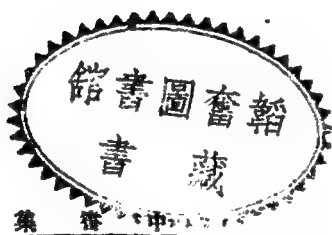 韜奮圖書館
藏書
中 集